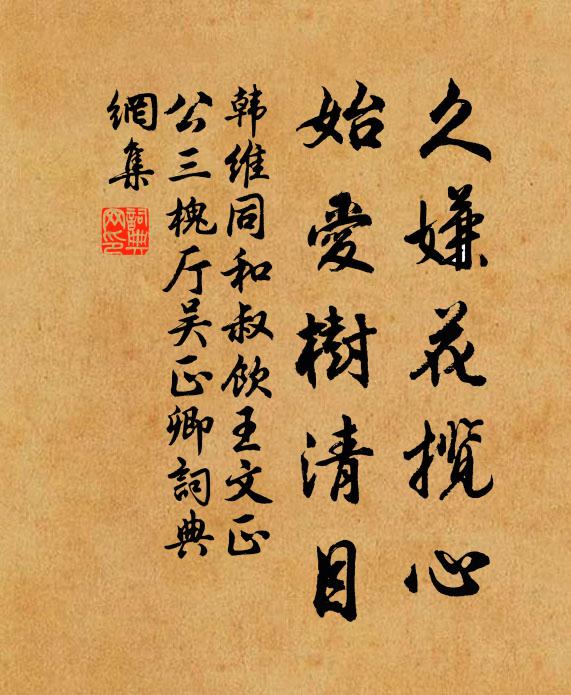 久嫌花揽心
始愛樹清目
韩维同和叔飲王文正
公三槐厅吴正卿詞典
網集
詞典網印